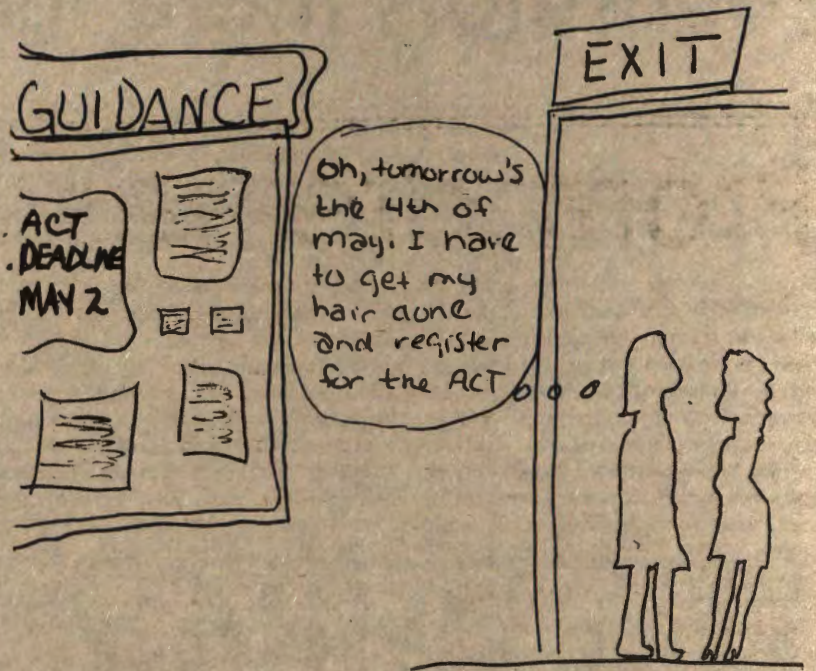 GUIDANCE
EXIT
ACT
DEADLINE
MAY 2
Oh, tomorrow's
the 4th of
may. I have
to get my
hair done
and register
for the ACT